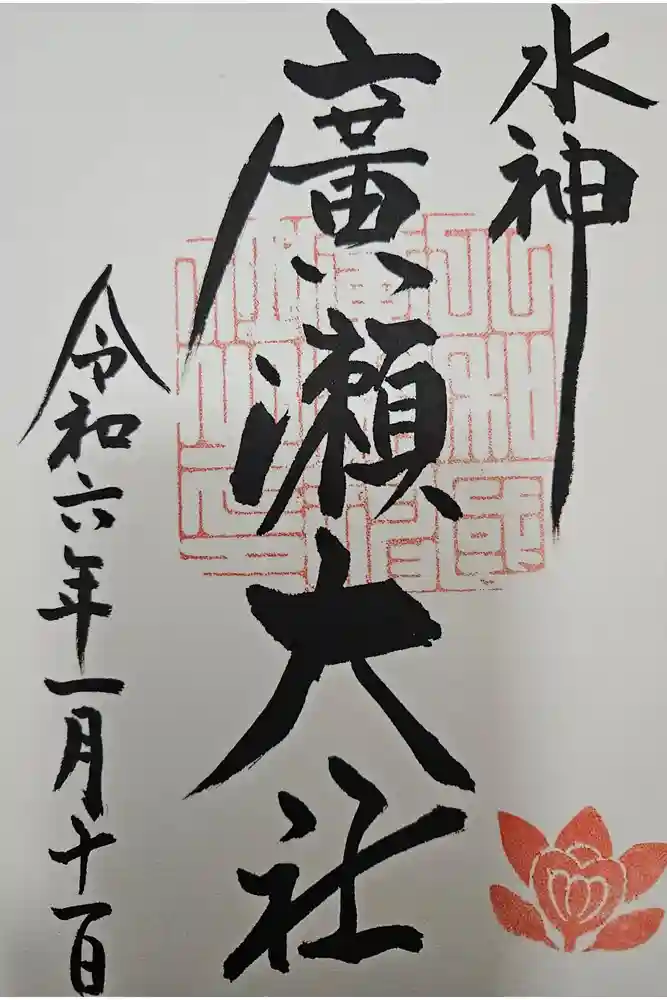 水神
廣瀬大社
令和六年一月十一日